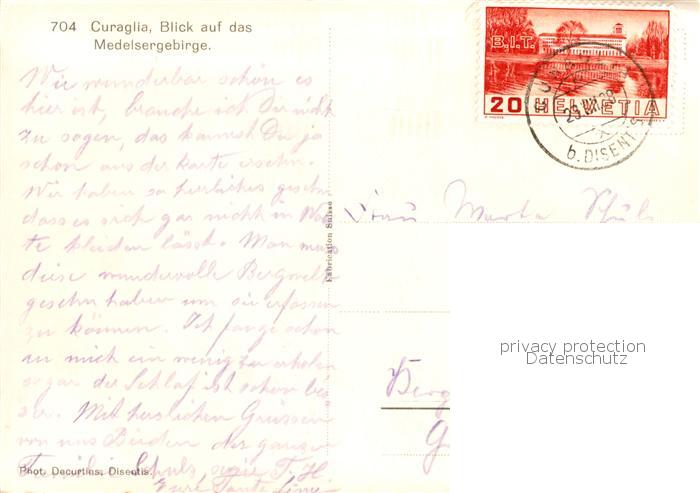 704 Curaglia, Blick auf das
Medelsergebirge.
Wie wunderbar schön es
hier ist, brauche ich Dir nicht
zu sagen, das kannst Du ja
schon aus der Karte ersehn.
Wir haben so herrliches gesehn
dass es sich gar nicht in Wor-
te kleiden lässt. Man muss
diese wundervolle Bergwelt
gesehn haben um sie erfassen
zu können. Ich fange schon
an mich ein wenig zu erholen
sogar der Schlaf ist schon bes-
ser. Mit herzlichen Grüssen
von uns Beiden der ganzen
Familie Schulz, sowie F. H.
Eure Tante
Phot. Decurtins, Disentis.
Fabrication Suisse
B.I.T.
20 HELVETIA
CURAGLIA
23.VII.38
b. DISENTIS
Frau Marta Schul
Berg
G
privacy protection
Datenschutz